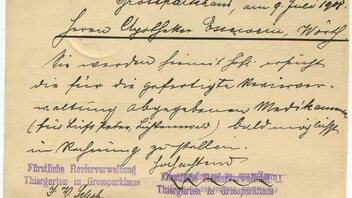 Grossparkhaus, am 9. Juli 1908.
Herrn Apotheker Esserwein, Wörth
Sie werden hiemit höfl. ersucht
die für die gefertigte Revierver-
waltung abgegebenen Medikamente
(für bald möglichst
in Rechnung zu stellen.
Hochachtend
Fürstliche Revierverwaltung
Thiergarten in Grossparkhaus
Fürstliche Revierverwaltung
Thiergarten in Grossparkhaus